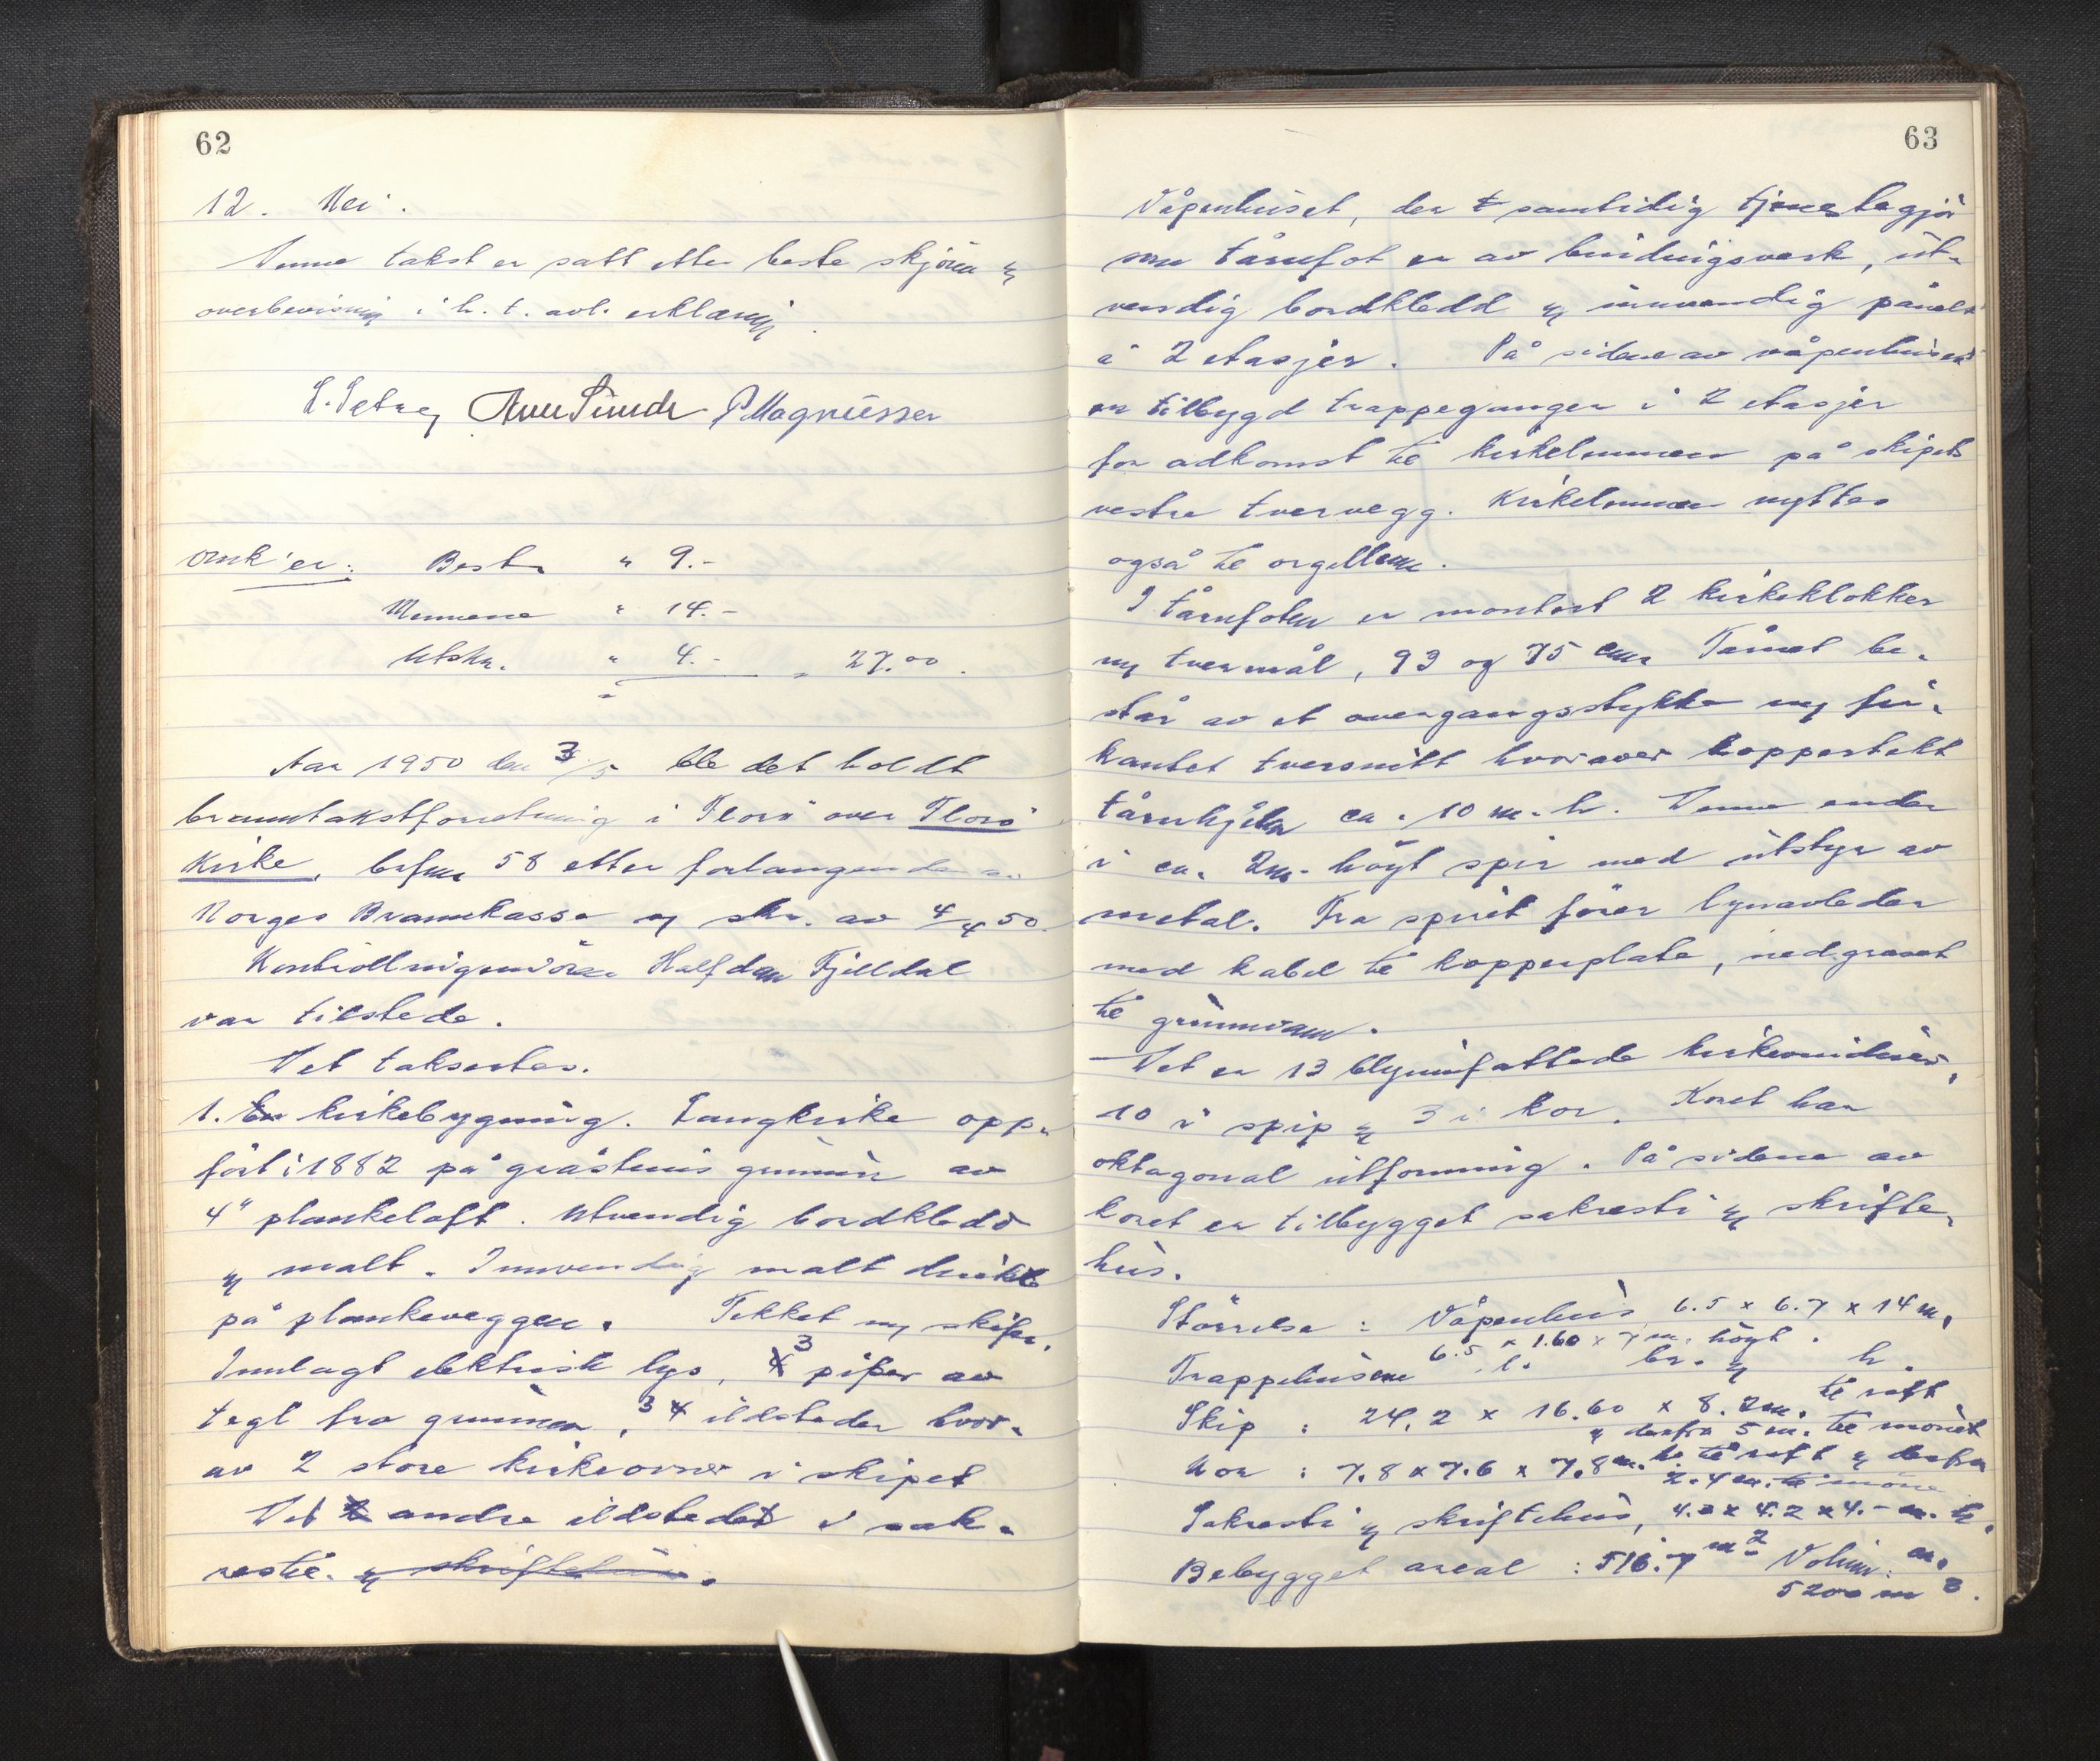 62
12. Nei.
Denne takst er satt etter beste skjönn og
overbevisning i h. t. avl. erklæring.
S. Setrey Arne Sunde P. Magnussen
Omk'er: Best. " 9.-
Mennene " 14.-
Utskr. " 4.- " 27.00.
Aar 1950 den 3/5 ble det holdt
branntakstforretning i Florö over Florö
Kirke, brfnr 58 etter forlangende av
Norges Brannkasse og skr. av 4/4 50.
Kontrollingeniör Halfdan Fjelldal
var tilstede.
Det taksertes.
1. En kirkebygning. Langkirke opp-
fört i 1882 på gråsteins grunnmur av
4" plankelaft. Utvendig bordkledd
og malt. Innvendig malt direkte
på plankeveggen. Tekket m/ skifer.
Innlagt elektrisk lys, 3 piper av
tegl fra grunnen, 3 4 ildsteder hvor-
av 2 store kirkeovner i skipet
Det 2 andre ildstedet i sak-
resti. og skriftehus.
63
Våpenhuset, der t samtidig tjenestegjör
som tårnfot er av bindingsverk, ut-
vendig bordkledd og innvendig panelt
i 2 etasjer. På sidene av våpenhuset
er tilbygd trappeganger i 2 etasjer
for adkomst til kirkelemmen på skipets
vestre tvervegg. Kirkelemmen nyttes
også til orgellem.
I tårnfoten er montert 2 kirkeklokker
m/ tvermål, 93 og 75 cm. Tårnet be-
står av et overgangsstykke m/ fir-
kantet tversnitt hvorover koppertekt
tårnhjelm ca. 10 m. h. Denne ender
i ca. 2m. höyt spir med utstyr av
metal. Fra spiret förer lynavleder
med kabel til kopperplate, nedgravet
til grunnvann.
Det er 13 blyinnfattede kirkevinduer,
10 i spip og 3 i kor. Koret har
oktagonal utforming. På sidene av
koret er tilbygget sakresti og skrifte-
hus.
Störrelse: Våpenhus 6.5 x 6.7 x 14 m.
6.5 x 1.60 x 7 m. höyt.
Trappehusene l. br. og h.
Skip: 24.2 x 16.60 x 8.2m. til raft
og derfra 5 m. til mönet
Kor: 7.8 x 7.6 x 7.8 m. h. til raft og derfra
2.4 m. til möne
Sakresti og skriftehus, 4.2 x 4.2 x 4.- m. h.
Bebygget areal: 516.7 m2 Volum:
5200 m3.